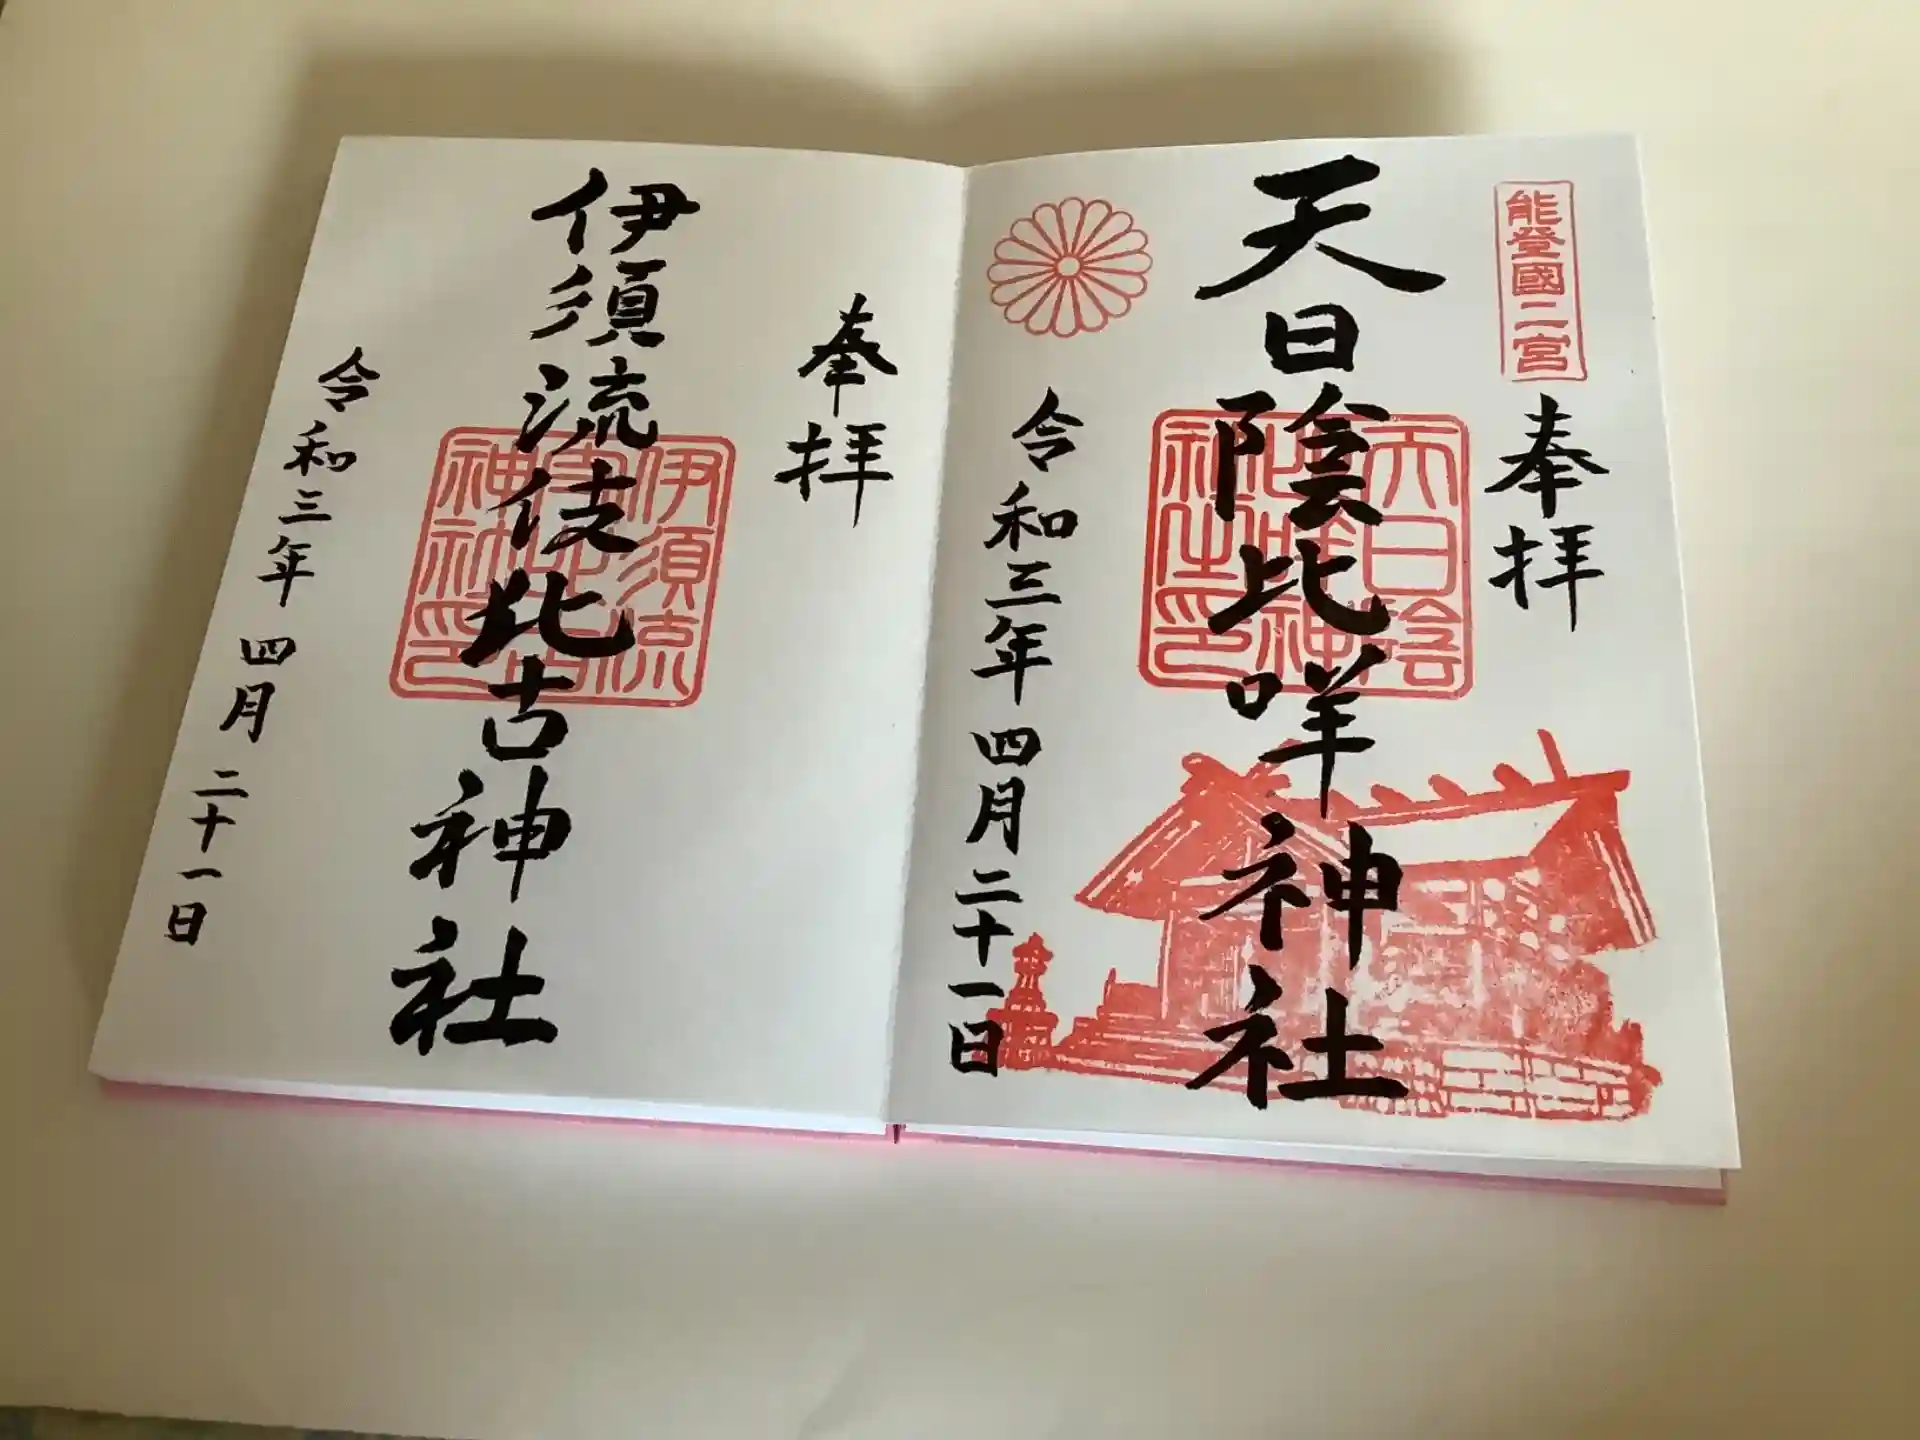 能登國二宮
奉拝
天日陰比咩神社
天日陰比咩神社之印
令和三年四月二十一日
奉拝
伊須流伎比古神社
伊須流伎比古神社印
令和三年四月二十一日